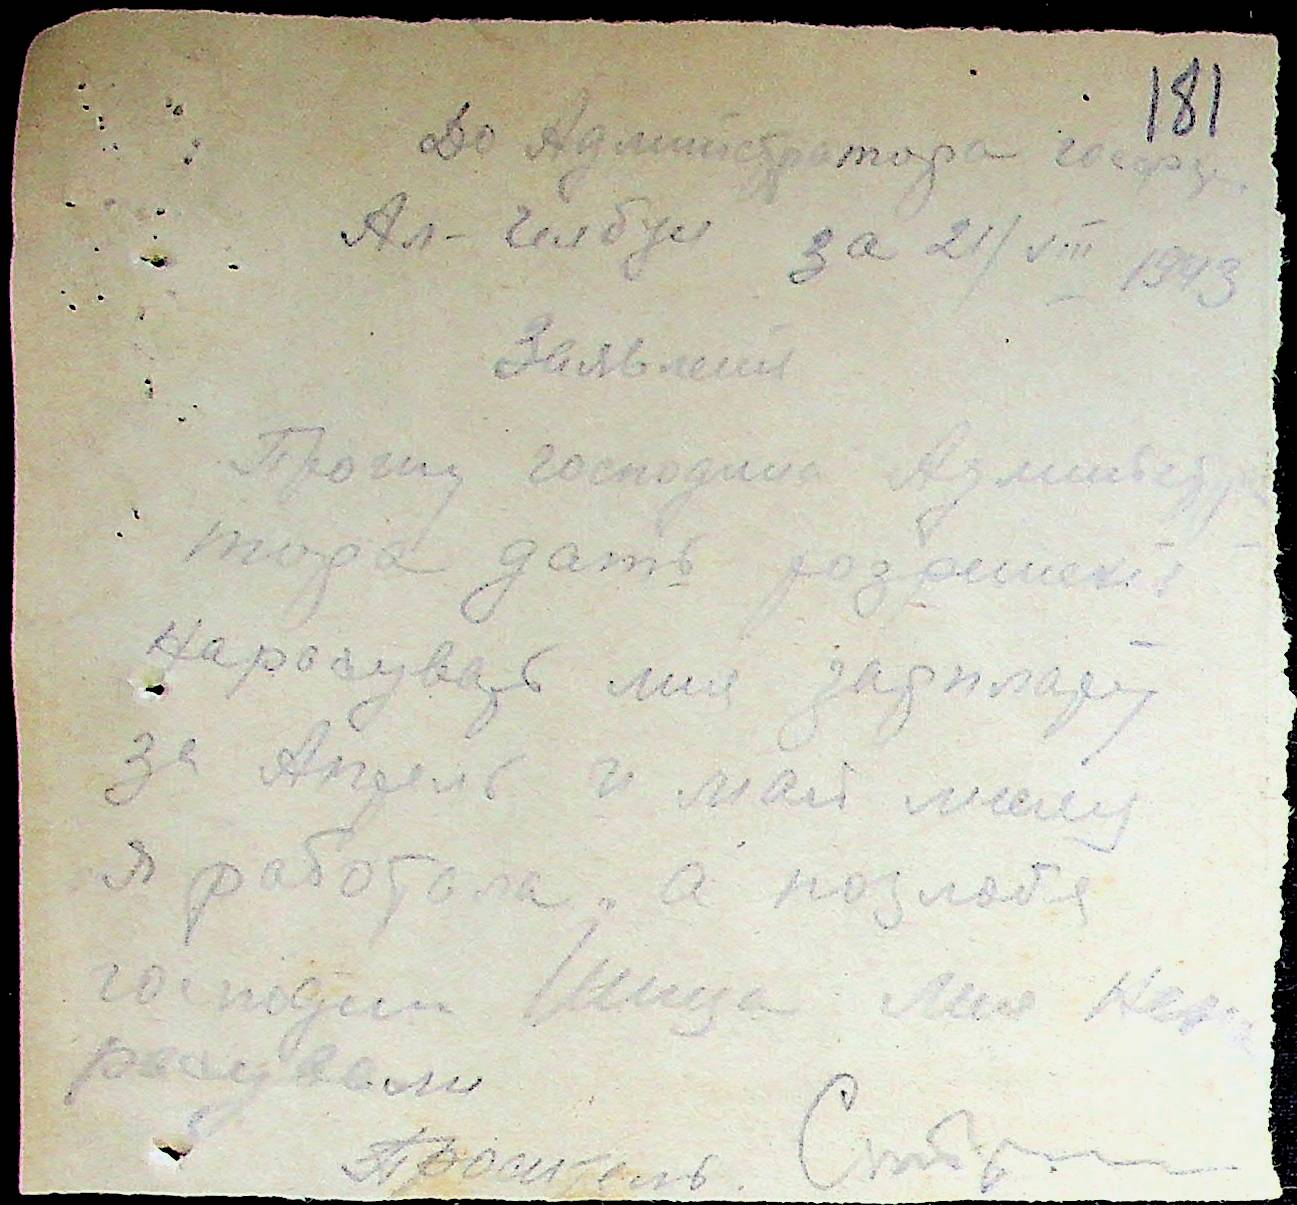 181
До Администратора госфер.
Ал- Гилбуи за 21/VIII 1943
Заявлений
Прошу господина Администра
тора дать розрешений
Нарахувать мия зарплату
за Апрель и май месяц
я работала. а позлобе
господин мия Нена
рахували
Проситель.